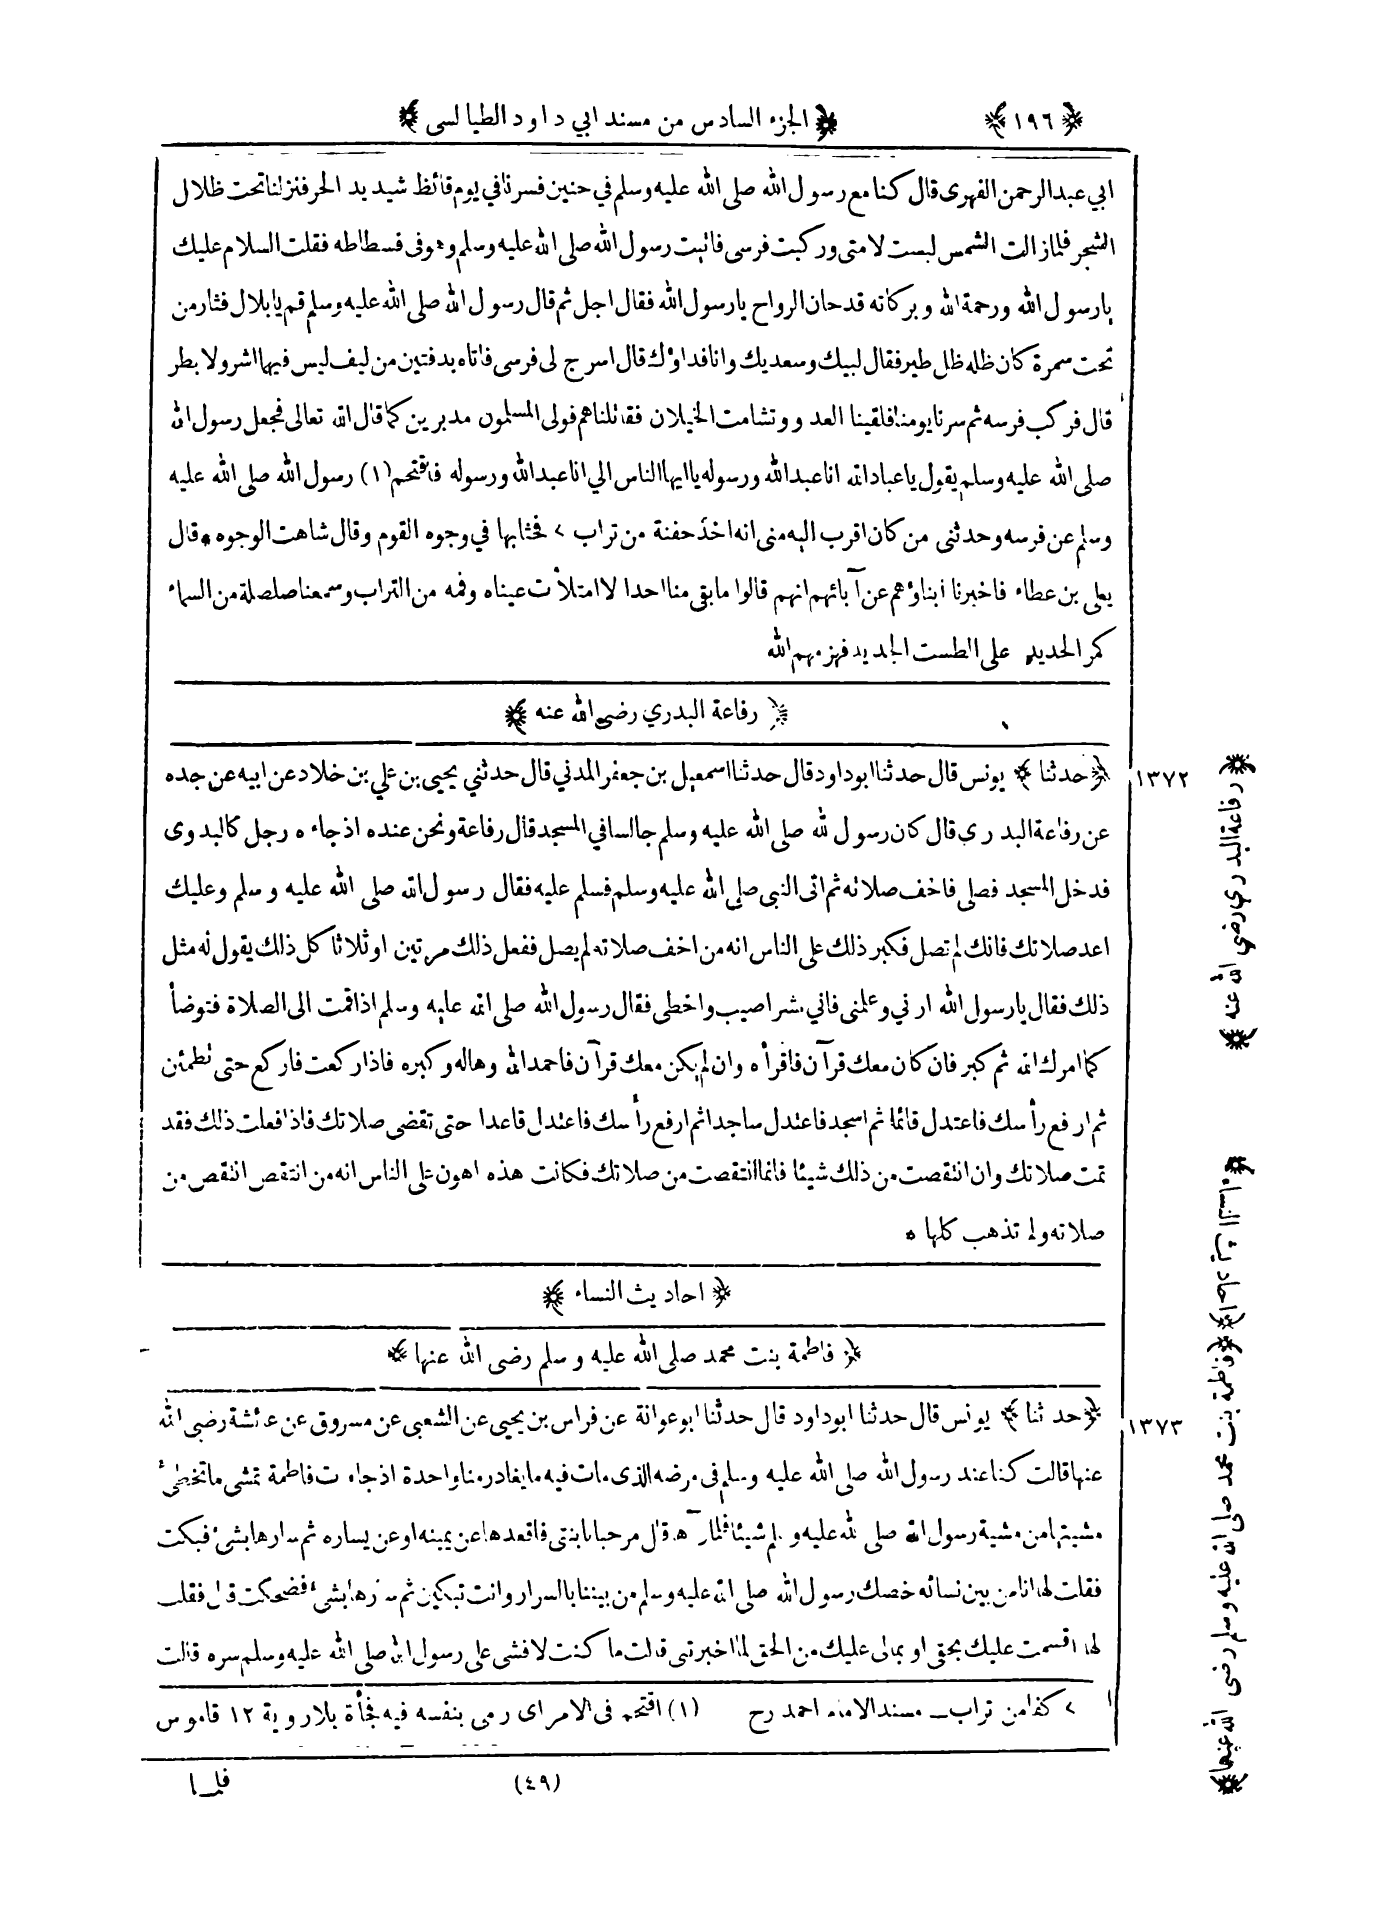 ﴿ ١٩٦ ﴾ ﴿ الجزء السادس من مسند ابي داود الطيالسى ﴾
ابي عبد الرحمن الفهرى قال كنا مع رسول الله صلى الله عليه وسلم في حنين فسرنا في يوم قائظ شديد الحر فنزلنا تحت ظلال
الشجر فلما زالت الشمس لبست لامتى وركبت فرسى فاتيت رسول الله صلى الله عليه وسلم وهو فى فسطاطه فقلت السلام عليك
يا رسول الله ورحمة الله وبركاته قد حان الرواح يا رسول الله فقال اجل ثم قال رسول الله صلى الله عليه وسلم قم يا بلال فثار من
تحت سمرة كان ظله ظل طير فقال لبيك وسعديك وانا فداؤك قال اسرج لى فرسى فاتاه بدفتين من ليف ليس فيهما اشر ولا بطر
قال فركب فرسه ثم سرنا يومنا فلقينا العدو وتشامت الخيلان فقاتلناهم فولى المسلمون مدبرين كما قال الله تعالى فجعل رسول الله
صلى الله عليه وسلم يقول يا عباد الله انا عبد الله ورسوله يا ايها الناس الي انا عبد الله ورسوله فاقتحم (١) رسول الله صلى الله عليه
وسلم عن فرسه وحدثنى من كان اقرب اليه منى انه اخذ حفنة من تراب ٢ فحثا بها في وجوه القوم وقال شاهت الوجوه * قال
يعلى بن عطاء فاخبرنا ابناؤهم عن آبائهم انهم قالوا ما بقى منا احدا لا امتلأت عيناه وفمه من التراب وسمعنا صلصلة من السماء
كمر الحديد على الطست الجديد فهزمهم الله
﴿ رفاعة البدري رضى الله عنه ﴾
﴿ حدثنا ﴾ يونس قال حدثنا ابو داود قال حدثنا اسمعيل بن جعفر المدني قال حدثني يحيى بن علي بن خلاد عن ابيه عن جده
١٣٧٢
عن رفاعة البدرى قال كان رسول لله صلى الله عليه وسلم جالسا في المسجد قال رفاعة ونحن عنده اذ جاءه رجل كالبدوى
فدخل المسجد فصلى فاخف صلاته ثم اتى النبي صلى الله عليه وسلم فسلم عليه فقال رسول الله صلى الله عليه وسلم وعليك
اعد صلاتك فانك لم تصل فكبر ذلك على الناس انه من اخف صلاته لم يصل ففعل ذلك مرتين او ثلاثا كل ذلك يقول له مثل
ذلك فقال يا رسول الله ارني وعلمنى فاني بشر اصيب واخطى فقال رسول الله صلى الله عليه وسلم اذا قمت الى الصلاة فتوضأ
كما امرك الله ثم كبر فان كان معك قرآن فاقرأه وان لم يكن معك قرآن فاحمد الله وهلله وكبره فاذا ركعت فاركع حتى تطمئن
ثم ارفع رأسك فاعتدل قائما ثم اسجد فاعتدل ساجدا ثم ارفع رأسك فاعتدل قاعدا حتى تقضى صلاتك فاذا فعلت ذلك فقد
تمت صلاتك وان انتقصت من ذلك شيئا فانما انتقصت من صلاتك فكانت هذه اهون على الناس انه من انتقص انتقص من
صلاته ولم تذهب كلها *
﴿ احاديث النساء ﴾
﴿ فاطمة بنت محمد صلى الله عليه وسلم رضى الله عنها ﴾
﴿ حدثنا ﴾ يونس قال حدثنا ابو داود قال حدثنا ابو عوانة عن فراس بن يحيى عن الشعبى عن مسروق عن عائشة رضى الله
١٣٧٣
عنها قالت كنا عند رسول الله صلى الله عليه وسلم فى مرضه الذى مات فيه ما يغادر منا واحدة اذ جاءت فاطمة تمشى ما تخطئ
مشيتها من مشية رسول الله صلى لله عليه و لم شيئا فلما رآها قال مرحبا بابنتى فاقعدها عن يمينه او عن يساره ثم سارها بشئ فبكت
فقلت لها انا من بين نسائه خصك رسول الله صلى الله عليه وسلم من بيننا بالسرار وانت تبكين ثم سارها بشئ فضحكت قال فقلت
لها اقسمت عليك بحقى او بمالى عليك من الحق لما اخبرتنى قالت ما كنت لافشى على رسول الله صلى الله عليه وسلم سره قالت
٢ كفا من تراب ــ مسند الامام احمد رح (١) اقتحم فى الامر اى رمى بنفسه فيه فجأة بلا روية ١٢ قاموس
(٤٩) فلما
﴿ رفاعة البدري رضى الله عنه ﴾
﴿ احاديث النساء ﴾ ﴿ فاطمة بنت محمد صلى الله عليه وسلم رضى الله عنها ﴾